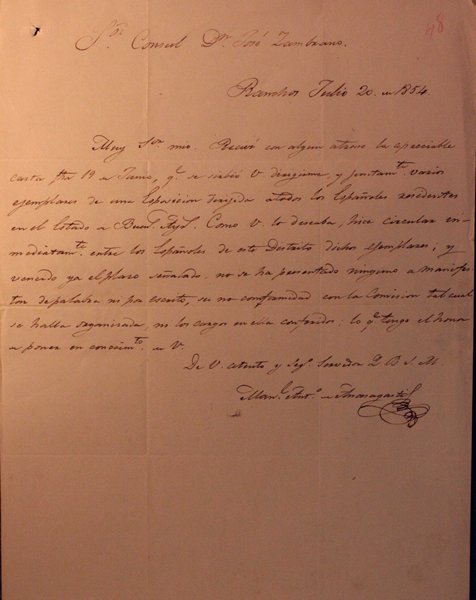 48
Sor. Consul Dn. José Zambrano.
Ranchos Julio 20. de 1854.
Muy Sor. mio. Recivi con algun atraso la apreciable
carta fha 19 de Junio, qe. se sirbió V dirigirme, y juntamte. varios
ejemplares de una Esposicion dirijida atodos los Españoles residentes
en el Estado de Buens. Ays. Como V. lo deseaba, hice circular en-
mediatamte. entre los Españoles de este Destrito dichos ejemplares; y
vencido ya el plazo señalado, no se ha presentado ninguno a manifes-
tar depalabra ni por escrito, su no conformidad con la Comision tal cual
se halla organizada, ni los cargos en ella conferidos: lo qe. tengo el honor
de poner en conocimto. de V.
De V. atento y Sego. Servidor Q. B. S. M.
Manl. Anto. de